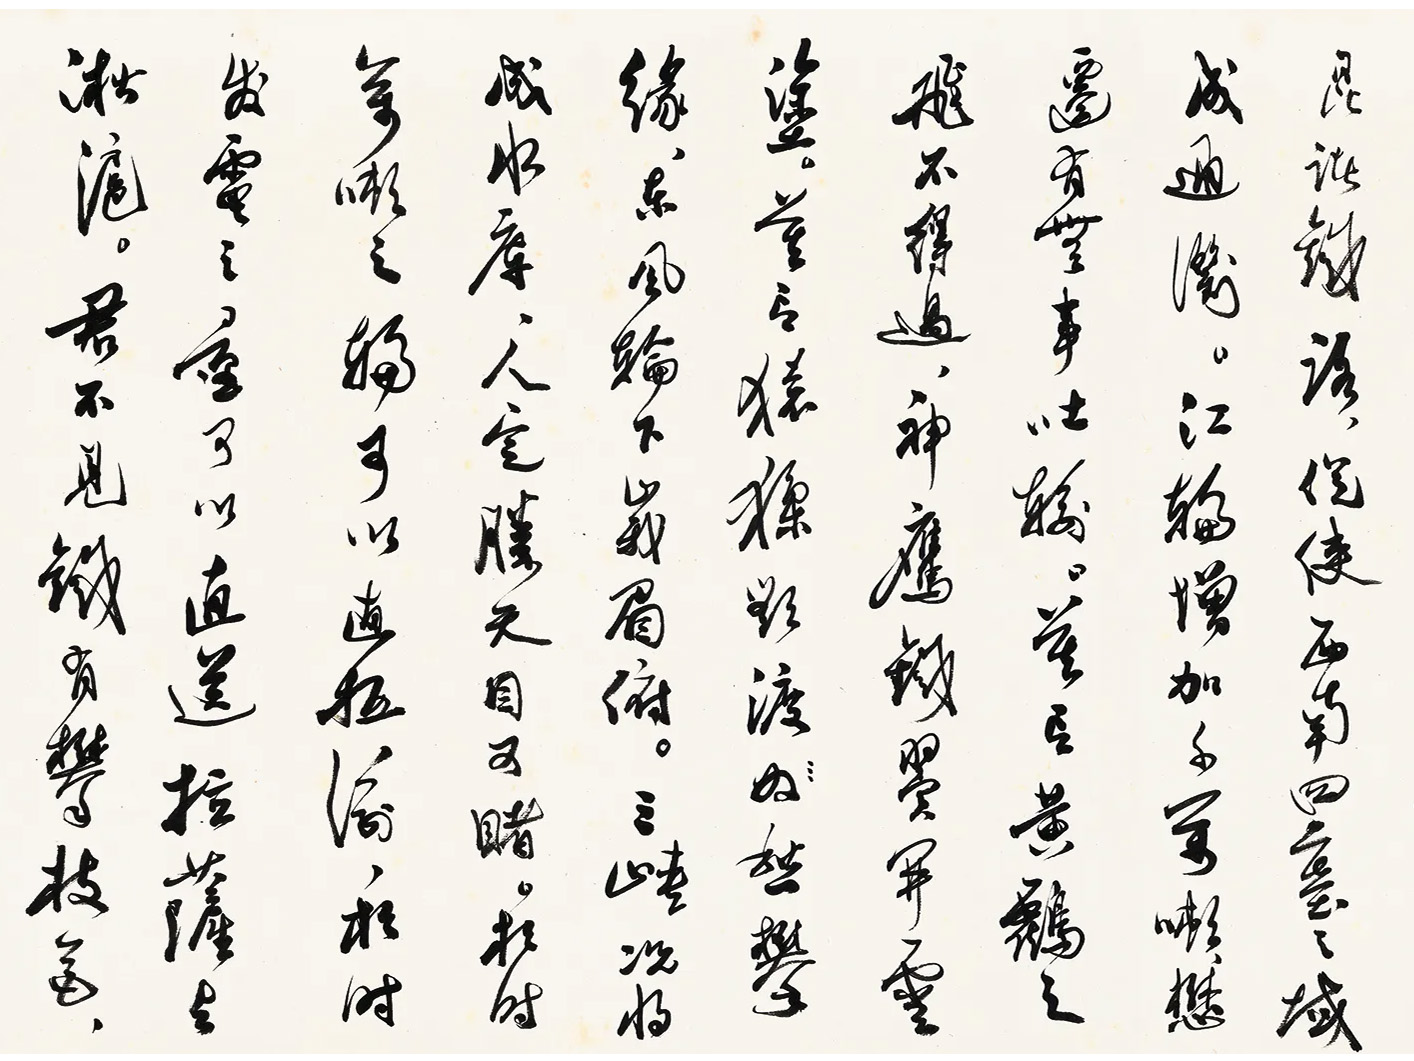 昆鐵路、促使西南四塞之域
成通衢。江輪增加千萬噸、懋
遷有無事吐輸。莫言黃鶴之
飛不得過、神鷹鐵翼開雲
塗。莫言猿猱欲渡愁攀
緣、東風輪下峩眉俯。三峽况将
成水庫、人定勝天目可睹。於时
萬噸之輪可以直抵渝、於时
发電之量可以直送拉薩与
淞滬。君不見鐵有攀枝花、